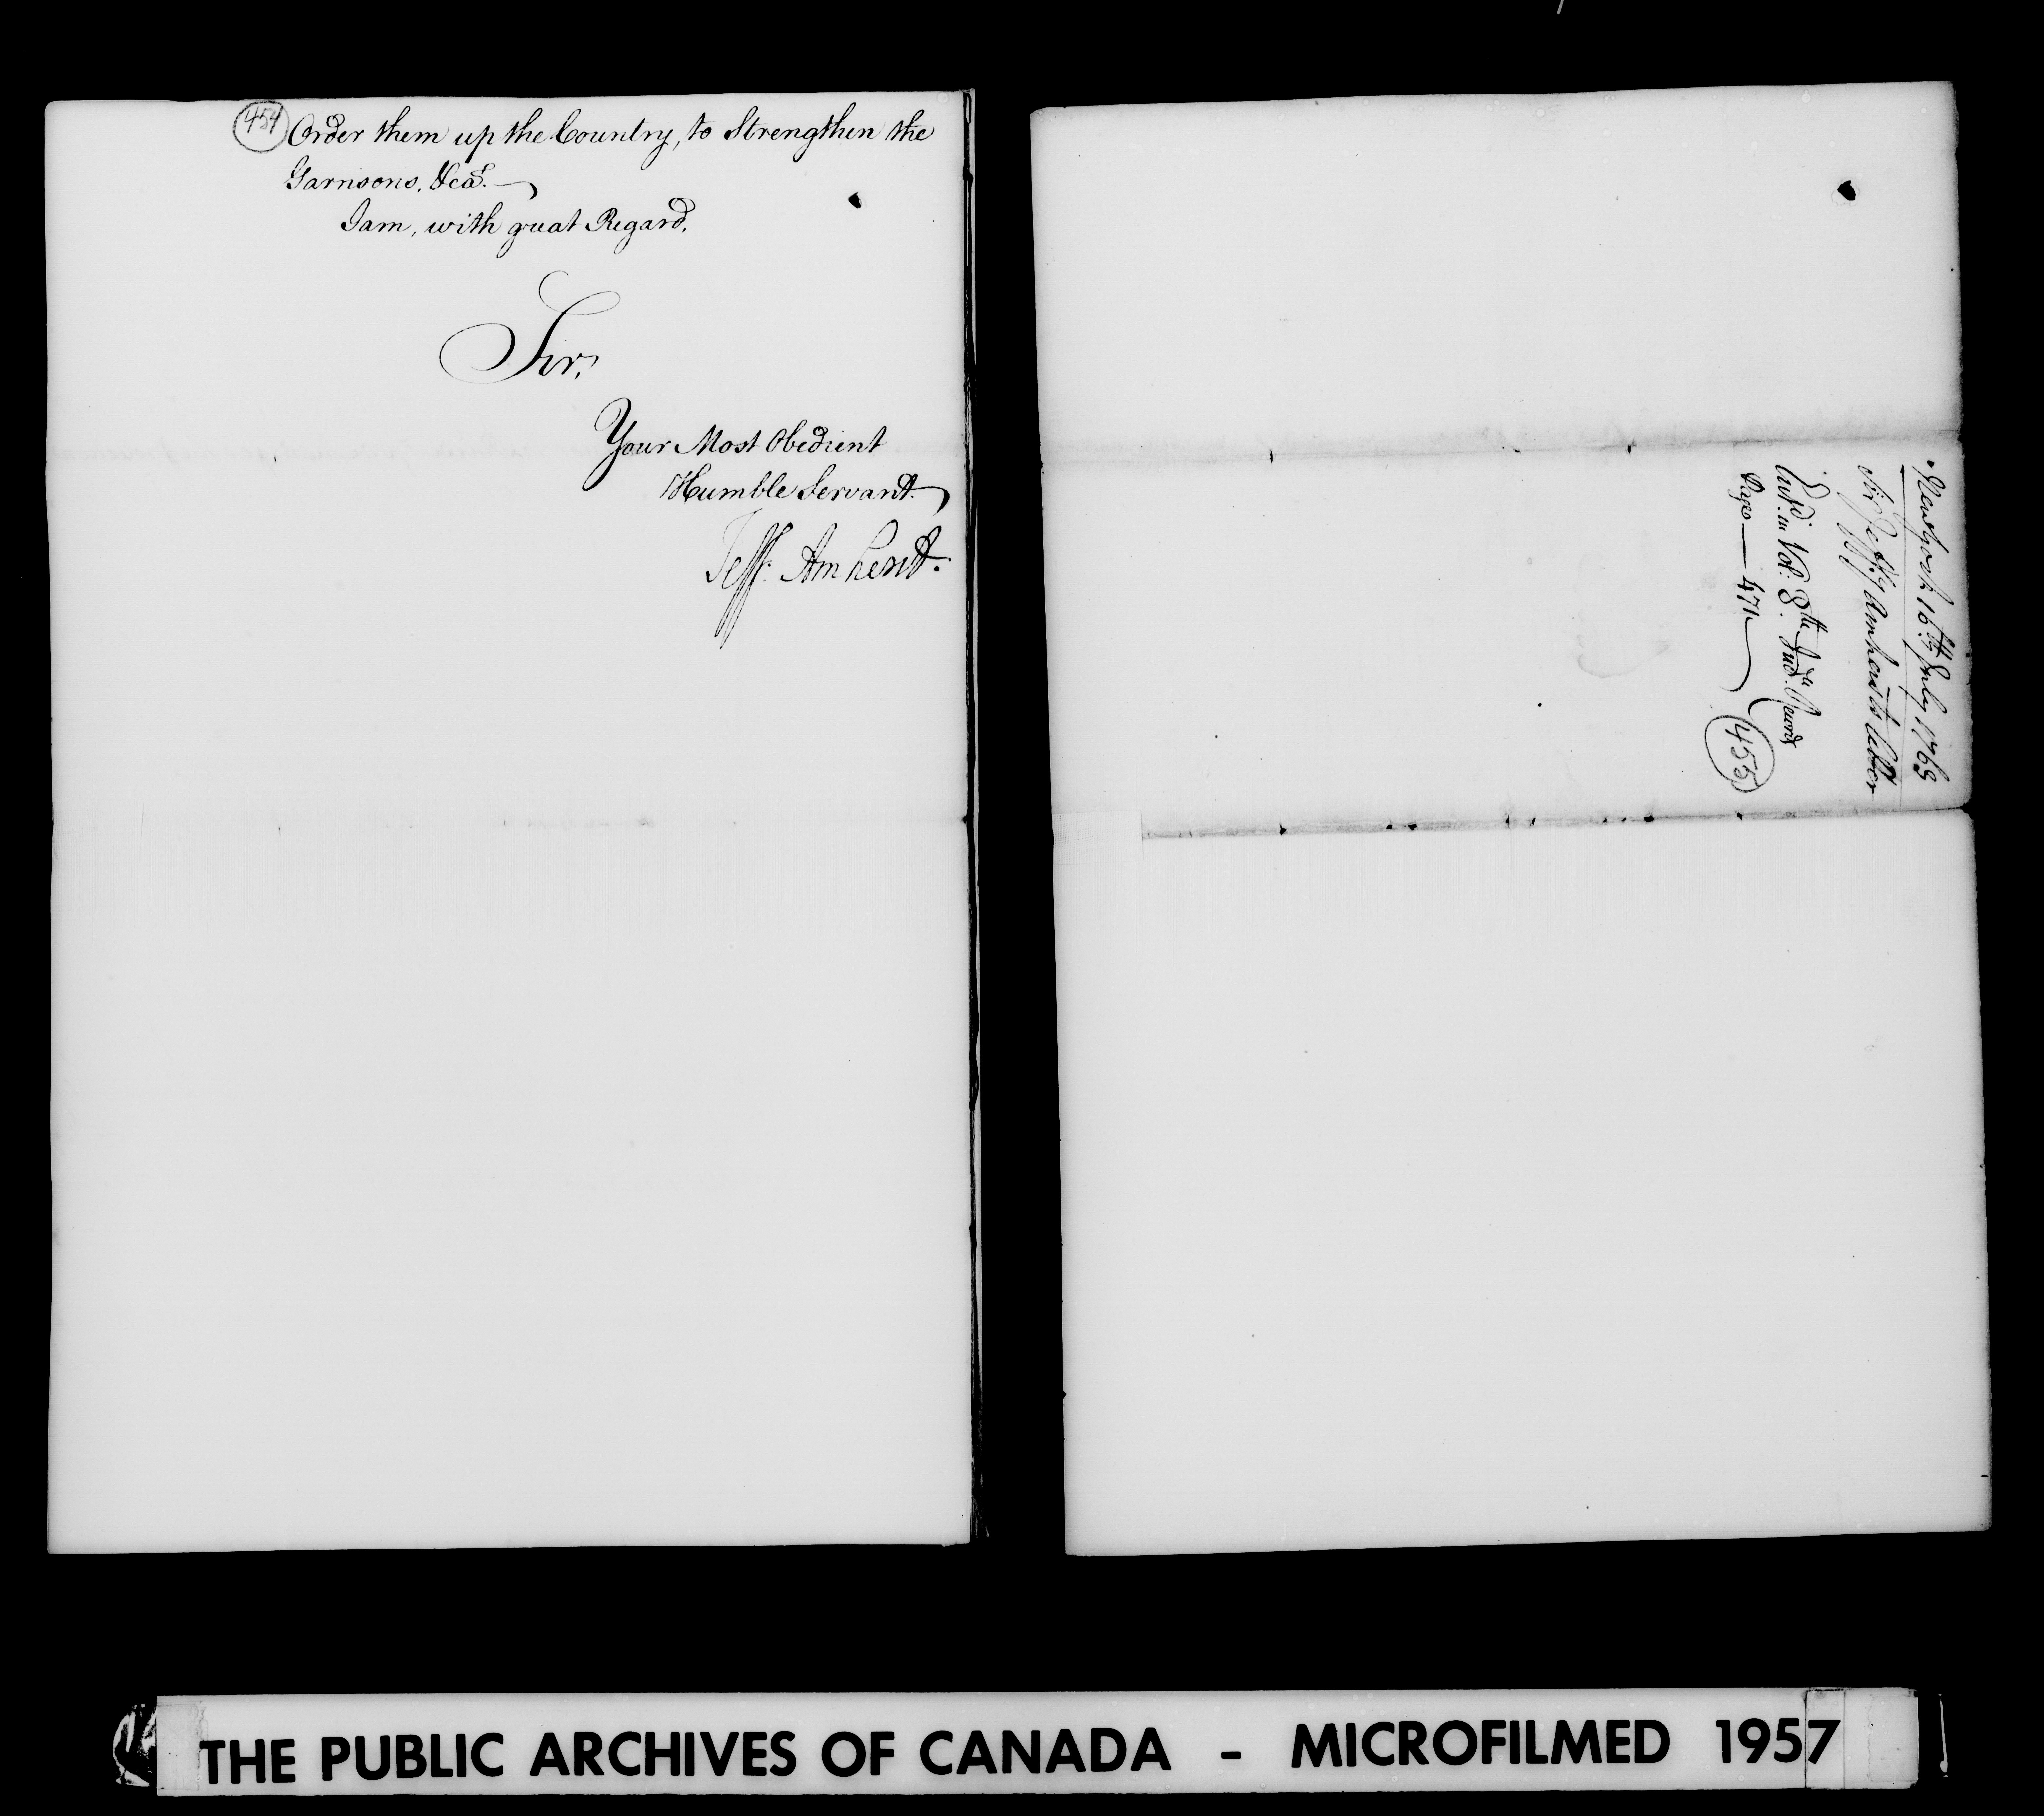 454
Order them up the Country, to Strengthen the
Garrisons, &ca.
I am, with great Regard,
Sir,
Your Most Obedient
Humble Servant.
Jeff: Amherst.
New York 16th July 1763
Sir Jeffy Amhersts letter
in Vol: 8th Ind.n Records
Page — 471
455
THE PUBLIC ARCHIVES OF CANADA - MICROFILMED 1957